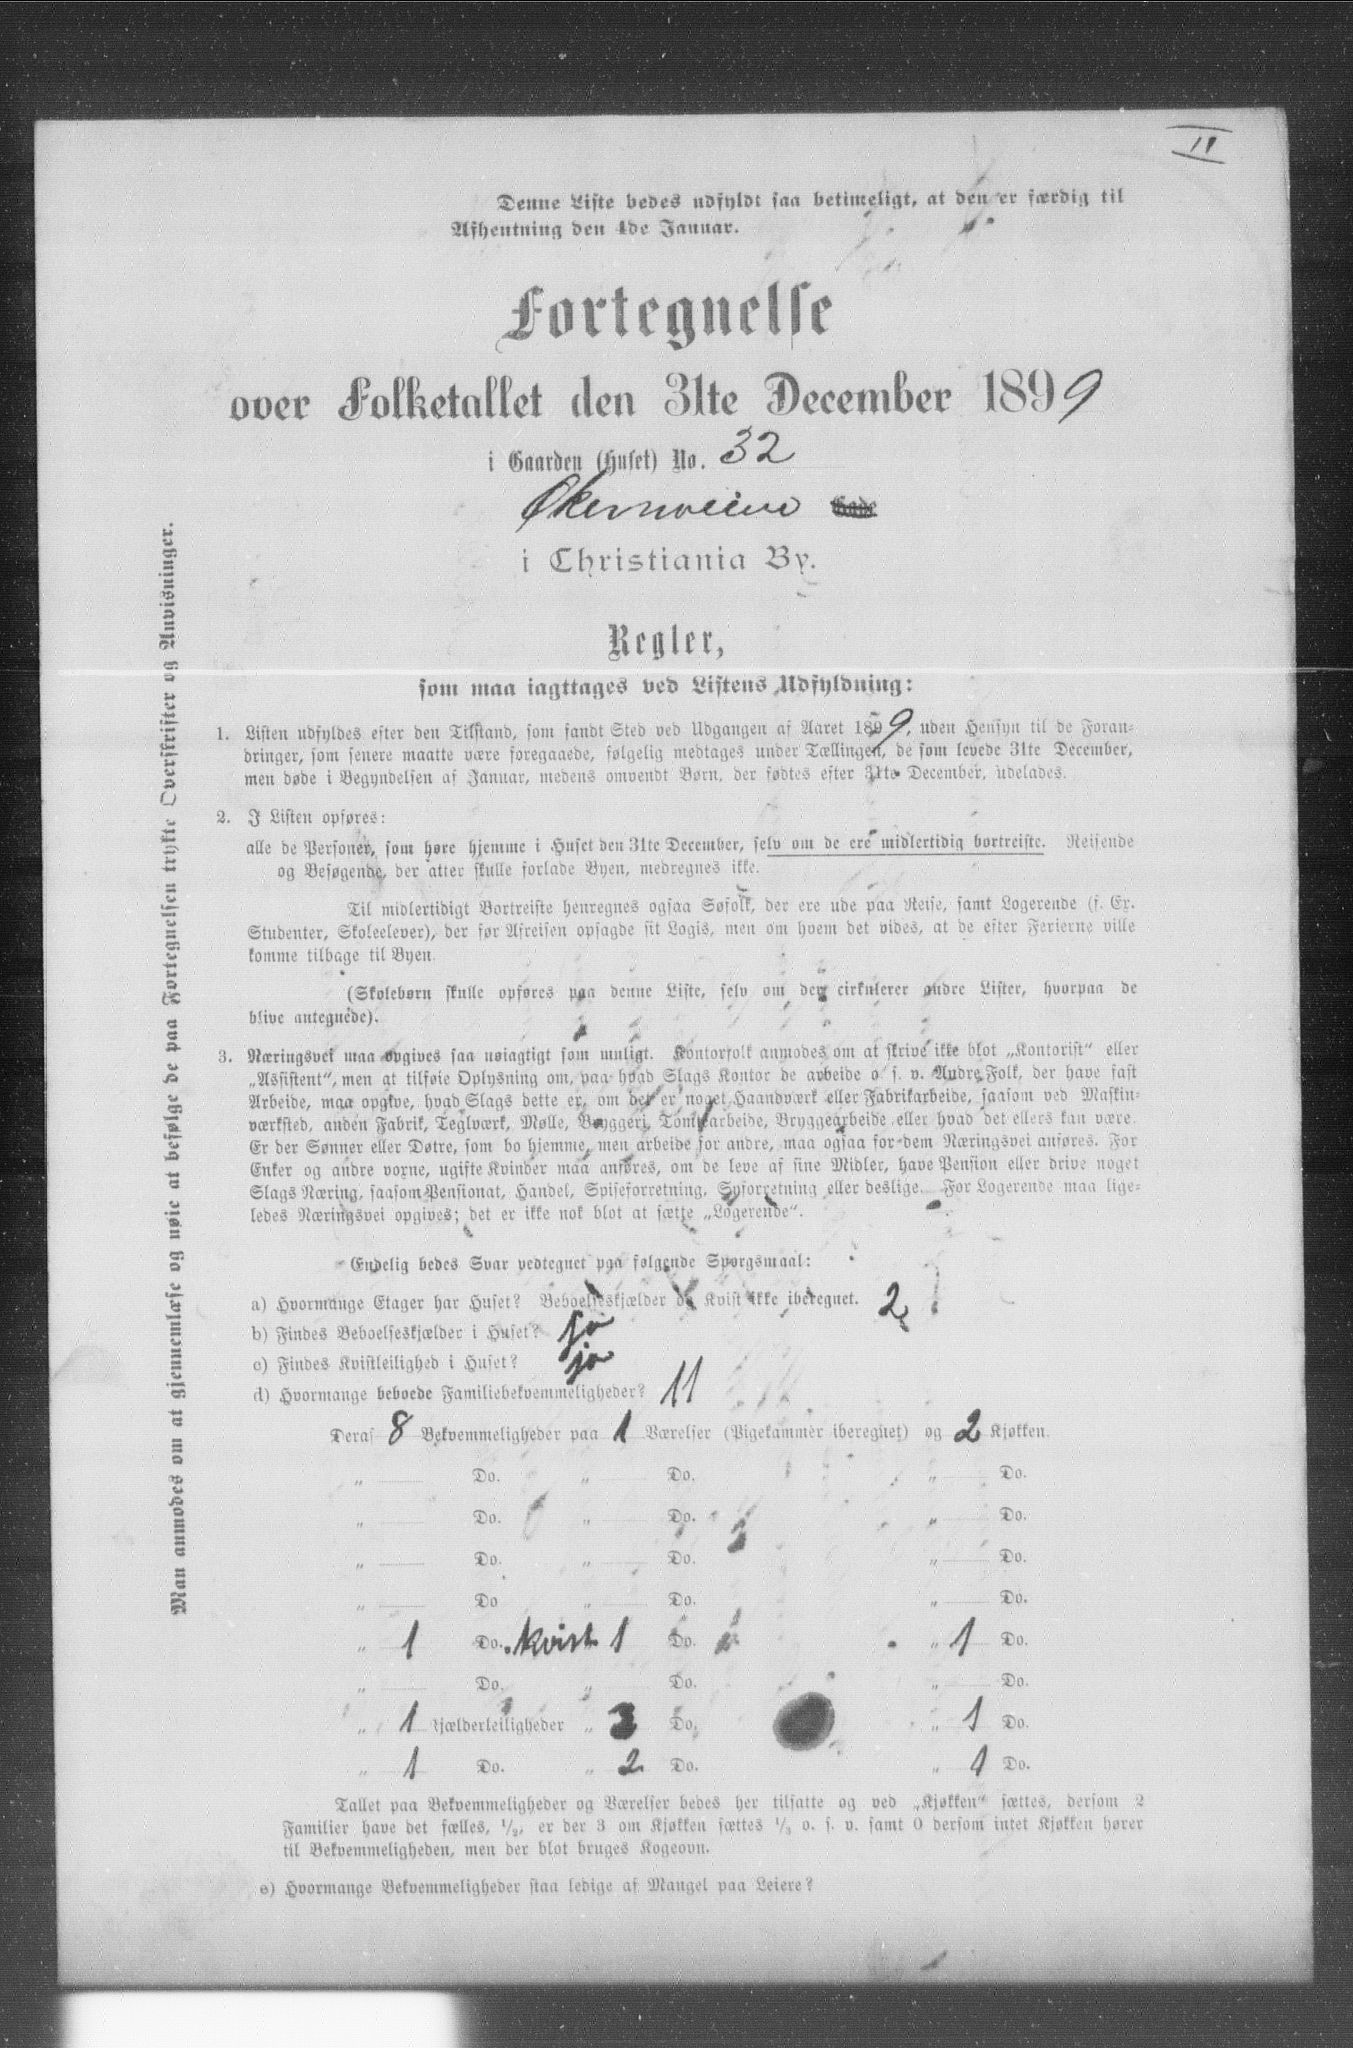 11
Denne Liste bedes udfyldt saa betimeligt, at den er færdig til
Afhentning den 4de Januar.
Fortegnelse
over Folketallet den 31te December 1899
i Gaarden (Huset) No. 32
Økernveien Gade
i Christiania By.
Regler,
som maa iagttages ved Listens Udfyldning:
1. Listen udfyldes efter den Tilstand, som fandt Sted ved Udgangen af Aaret 1899, uden Hensyn til de Foran-
dringer, som senere maatte være foregaaede, følgelig medtages under Tællingen, de som levede 31te December,
men døde i Begyndelsen af Januar, medens omvendt Børn, der fødtes efter 31te December, udelades.
2. I Listen opføres:
alle de Personer, som høre hjemme i Huset den 31te December, selv om de ere midlertidig bortreiste. Reisende
og Besøgende, der atter skulle forlade Byen, medregnes ikke.
Til midlertidigt Bortreiste henregnes ogsaa Søfolk, der ere ude paa Reise, samt Logerende (f. Ex.
Studenter, Skoleelever), der før Afreisen opsagde sit Logis, men om hvem det vides, at de efter Ferierne ville
komme tilbage til Byen.
(Skolebørn skulle opføres paa denne Liste, selv om der cirkulerer andre Lister, hvorpaa de
blive antegnede).
3. Næringsvei maa opgives saa nøiagtigt som muligt. Kontorfolk anmodes om at skrive ikke blot „Kontorist“ eller
„Assistent“, men at tilføie Oplysning om, paa hvad Slags Kontor de arbeide o. s. v. Andre Folk, der have fast
Arbeide, maa opgive, hvad Slags dette er, om det er noget Haandværk eller Fabrikarbeide, saasom ved Maskin-
værksted, anden Fabrik, Teglværk, Mølle, Bryggeri, Tomtearbeide, Bryggearbeide eller hvad det ellers kan være.
Er der Sønner eller Døtre, som bo hjemme, men arbeide for andre, maa ogsaa for dem Næringsvei anføres. For
Enker og andre voxne, ugifte Kvinder maa anføres, om de leve af sine Midler, have Pension eller drive noget
Slags Næring, saasom Pensionat, Handel, Spiseforretning, Syforretning eller deslige. For Logerende maa lige-
ledes Næringsvei opgives; det er ikke nok blot at sætte „Logerende“.
Endelig bedes Svar vedtegnet paa følgende Spørgsmaal:
a) Hvormange Etager har Huset? Beboelseskjælder og Kvist ikke iberegnet. 2
b) Findes Beboelseskjælder i Huset? ja
c) Findes Kvistleilighed i Huset? ja
d) Hvormange beboede Familiebekvemmeligheder? 11
Deraf 8 Bekvemmeligheder paa 1 Værelser (Pigekammer iberegnet) og 2 Kjøkken.
„ Do. „ Do. „ Do.
„ Do. „ Do. „ Do.
„ Do. „ Do. „ Do.
„ Do „ Do. „ Do.
„ 1 Do. kvist 1 Do. „ 1 Do.
„ Do. „ Do. „ Do.
„ 1 Kjælderleiligheder „ 3 Do. „ 1 Do.
„ 1 Do. „ 2 Do. „ 1 Do.
Tallet paa Bekvemmeligheder og Værelser bedes her tilsatte og ved „Kjøkken“ sættes, dersom 2
Familier have det fælles, 1/2, er der 3 om Kjøkken sættes 1/3 o. s. v. samt 0 dersom intet Kjøkken hører
til Bekvemmeligheden, men der blot bruges Kogeovn.
e) Hvormange Bekvemmeligheder staa ledige af Mangel paa Leiere?
Man anmodes om at gjennemlæse og nøie at befølge de paa Fortegnelsen trykte Overskrifter og Anvisninger.